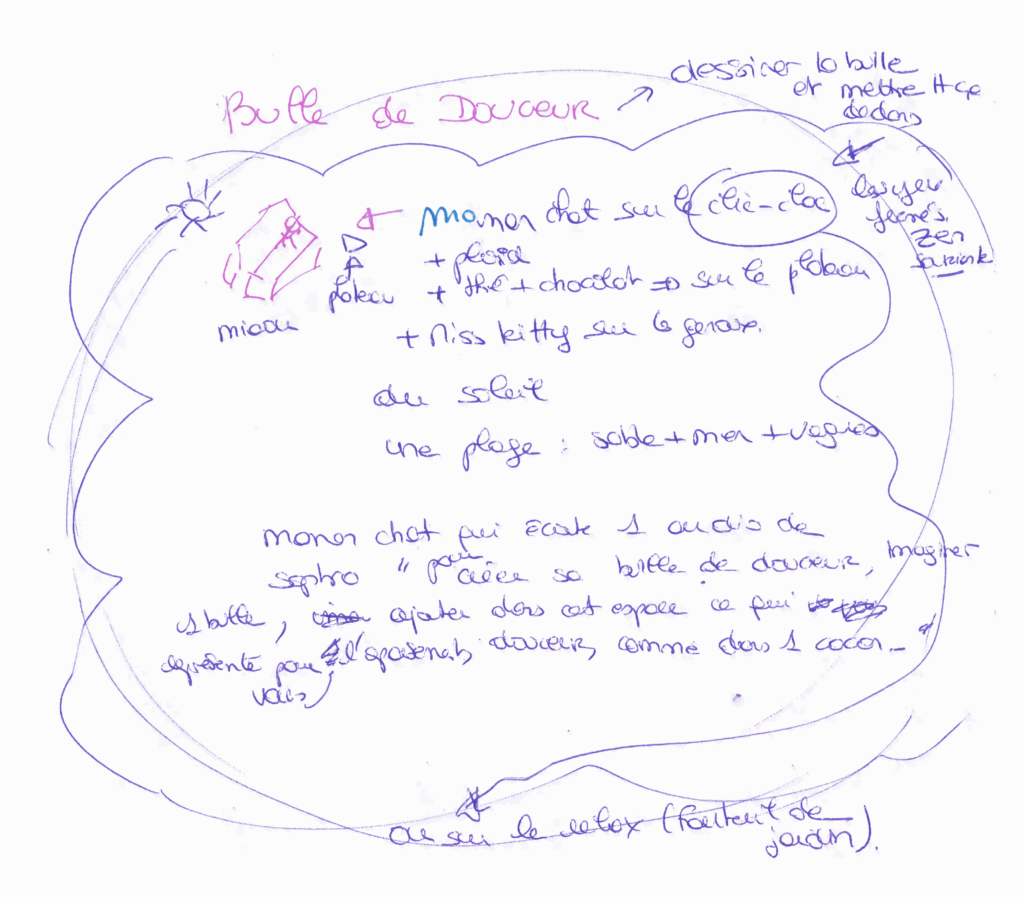 Bulle de Douceur
dessiner la bulle
et mettre tt ça
dedans
manon chat sur le clic-clac
les yeux
fermés
zen
+ plaid
plateau + thé + chocolat => sur le plateau
miaou
+ Miss kitty sur le genoux.
du soleil
une plage : sable + mer + vagues
manon chat qui écoute 1 audio de
sophro " pour créer sa bulle de douceur, imaginer
1 bulle, ajouter dans cet espace ce qui
représente pour l'apaisement, douceur, comme dans 1 cocon_ "
vous
ou sur le relax (fauteuil de
jardin).